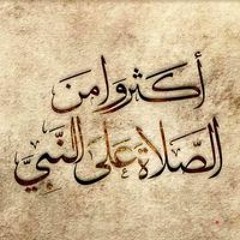 أَكثِرُوا مِنَ
الصَّلَاةِ عَلَى النَّبِيِّ